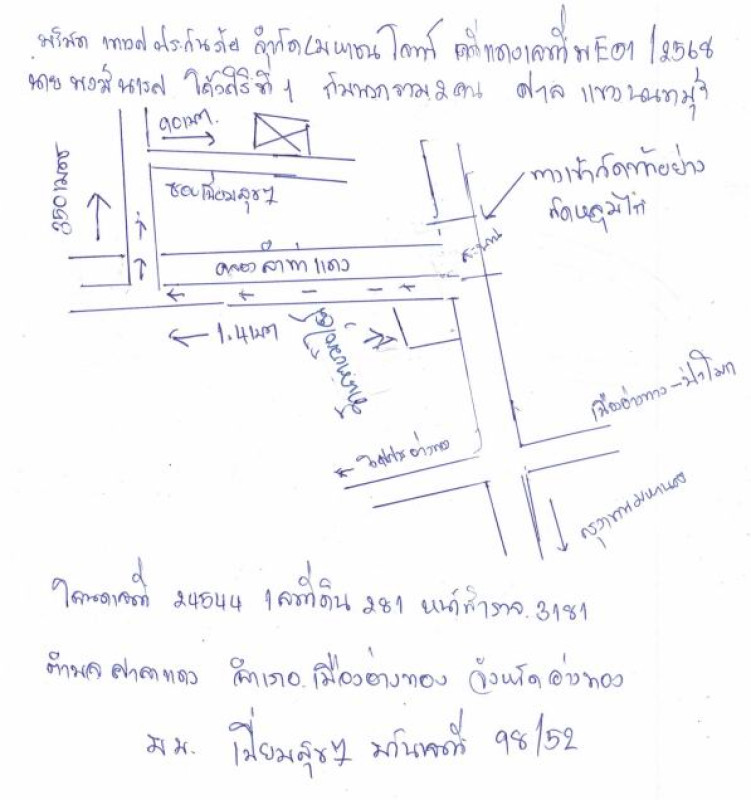 บริษัท เทเวศประกันภัย จำกัด (มหาชน) โจทก์ คดีแดงเลขที่ ผบE01/2568
ที่ 1 กับพวกรวม 2 คน ศาล แขวงนนทบุรี
90 เมตร
350 เมตร
ซอยเปี่ยมสุข 7
ทางเข้าวัดท่าอย่าง
วัดหลุมไก่
สะพาน
คลองศาลาแดง
1.4 กม
เมืองอ่างทอง-ป่าโมก
กรุงเทพมหานคร
โฉนดเลขที่ 24544 เลขที่ดิน 281 หน้าสำรวจ 3181
ตำบลศาลาแดง อำเภอ เมืองอ่างทอง จังหวัด อ่างทอง
มบ. เปี่ยมสุข 7 บ้านเลขที่ 98/52